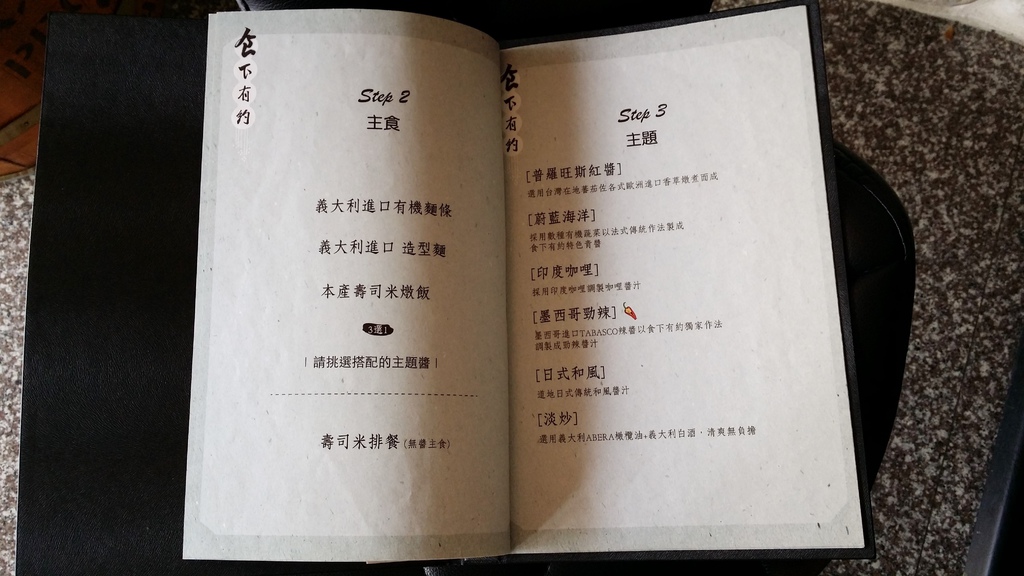 食下有約
Step 2
主食
義大利進口有機麵條
義大利進口 造型麵
本產壽司米燉飯
3選1
| 請挑選搭配的主題醬 |
壽司米排餐 (無醬主食)
食下有約
Step 3
主題
[普羅旺斯紅醬]
選用台灣在地蕃茄佐各式歐洲進口香草燉煮而成
[蔚藍海洋]
採用數種有機蔬菜以法式傳統作法製成
食下有約特色青醬
[印度咖哩]
採用印度咖哩調製咖哩醬汁
[墨西哥勁辣]
墨西哥進口TABASCO辣醬以食下有約獨家作法
調製成勁辣醬汁
[日式和風]
道地日式傳統和風醬汁
[淡炒]
選用義大利ABERA橄欖油+義大利白酒，清爽無負擔